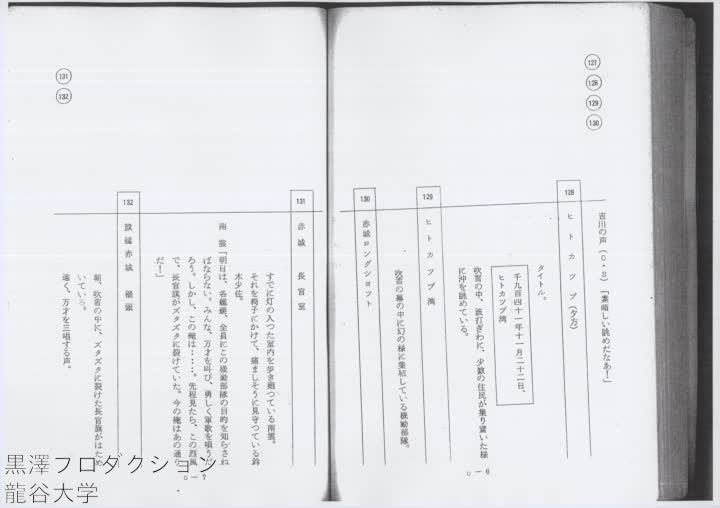 127
128
129
130
吉川の声（C・S）「素晴しい眺めだなあ！」
128 ヒトカップ（夕方）
タイトル。
千九百四十一年十一月二十二日、
ヒトカップ湾
吹雪の中、波打ぎわに、少数の住民が集り寘いた様
に沖を眺めている。
129 ヒトカップ湾
吹雪の幕の中に幻の様に集結している機動部隊。
130 赤城ロングショット
C－6
131
132
131 赤城 長官室
すでに灯の入つた室内を歩き廻つている南雲。
それを椅子にかけて、痛ましそうに見守つている鈴
木少佐。
南雲「明日は、各艦艇、全員にこの機動部隊の目的を知らさね
ばならない。みんな、万才を叫び、勇しく軍歌を唄うだ
ろう。しかし、この俺は‥‥‥。先程見たら、この烈風
で、長官旗がズタズタに裂けていた。今の俺はあの通り
だ！」
132 旗艦赤城 檣頭
朝、吹雪の中に、ズタズタに裂けた長官旗がはため
いている。
遠く、万才を三唱する声。
C－7
黒澤プロダクション
龍谷大学